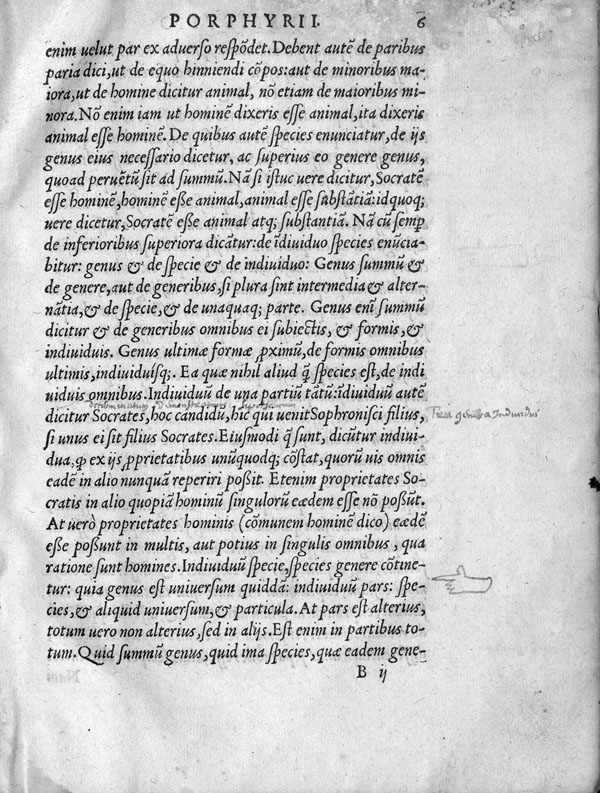 PORPHYRII. 6
enim uelut par ex aduerso respõdet. Debent autẽ de paribus
paria dici, ut de equo hinniendi cõpos: aut de minoribus ma-
iora, ut de homine dicitur animal, nõ etiam de maioribus mi-
nora. Nõ enim iam ut hominẽ dixeris esse animal, ita dixeris
animal esse hominẽ. De quibus autẽ species enunciatur, de ijs
genus eius necessario dicetur, ac superius eo genere genus,
quoad peruẽtũ sit ad summũ. Nã si istuc uere dicitur, Socratẽ
esse hominẽ, hominẽ eße animal, animal esse substãtiã: idquoq;
uere dicetur, Socratẽ eße animal atq; substantiã. Nã cũ semp
de inferioribus superiora dicãtur: de ĩdiuiduo species enũcia-
bitur: genus & de specie & de indiuiduo: Genus summũ &
de genere, aut de generibus, si plura sint intermedia & alter-
nãtia, & de specie, & de unaquaq; parte. Genus enĩ summũ
dicitur & de generibus omnibus ei subiectis, & formis, &
indiuiduis. Genus ultimæ formæ ꝓximũ, de formis omnibus
ultimis, indiuiduisq;. Ea quæ nihil aliud q̃ species est, de indi
uiduis omnibus. Indiuiduũ de una partiũ tãtũ: ĩdiuiduũ autẽ
dicitur Socrates, hoc candidũ, hic qui uenit Sophronisci filius, Tria genera Indiuidui
si unus ei sit filius Socrates. Eiusmodi q̃ sunt, dicũtur indiui-
dua, ꝙ ex ijs ꝓprietatibus unũquodq; cõstat, quorũ uis omnis
eadẽ in alio nunquã reperiri poßit. Etenim proprietates So-
cratis in alio quopiã hominũ singulorũ eædem esse nõ poßũt.
At uerò proprietates hominis (cõmunem hominẽ dico) eædẽ
eße poßunt in multis, aut potius in singulis omnibus, qua
ratione sunt homines. Indiuiduũ specie, species genere cõtine-
tur: quia genus est uniuersum quiddã: indiuiduũ pars: spe-
cies, & aliquid uniuersum, & particula. At pars est alterius,
totum uero non alterius, sed in alijs. Est enim in partibus to-
tum. Quid summũ genus, quid ima species, quæ eadem gene-
B ij